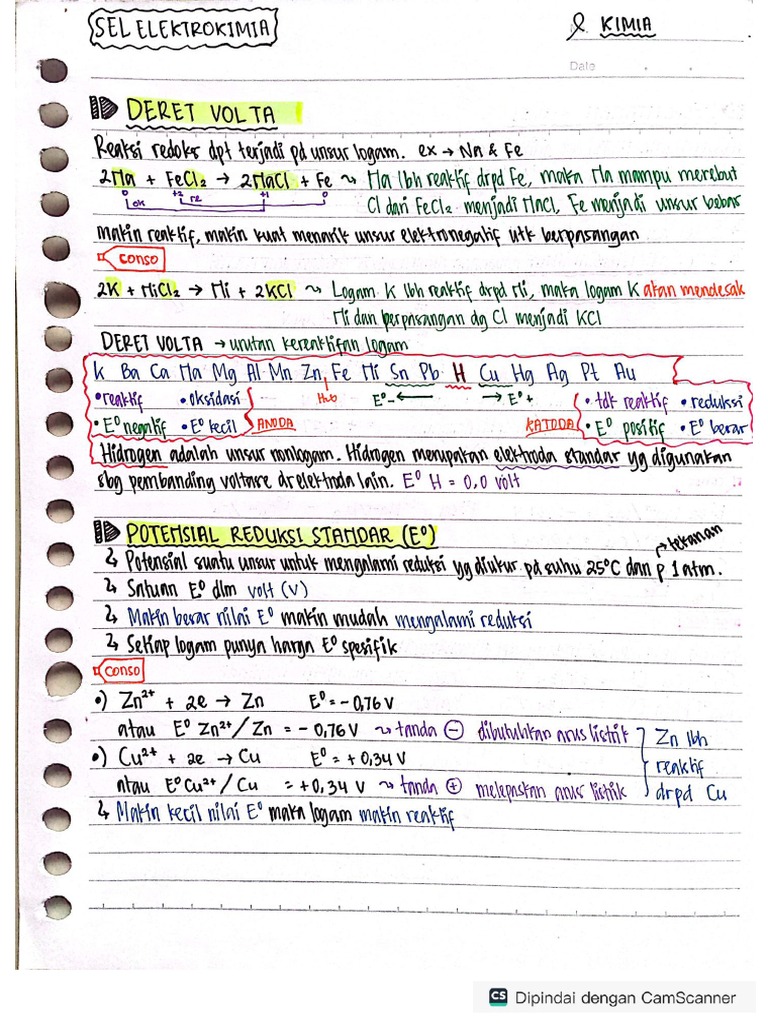 SEL ELEKTROKIMIA
KIMIA
Date
DERET VOLTA
Reaksi redoks dpt terjadi pd unsur logam. ex → Na & Fe
2Na + FeCl₂ → 2NaCl + Fe ↝ Na lbh reaktif drpd Fe, maka Na mampu merebut
0 +2 +1 0
ok re
Cl dari FeCl₂ menjadi NaCl, Fe menjadi unsur bebas
Makin reaktif, makin kuat menarik unsur elektronegatif utk berpasangan
conso
2K + NiCl₂ → Ni + 2KCl ↝ Logam K lbh reaktif drpd Ni, maka logam K akan mendesak
Ni dan berpasangan dg Cl menjadi KCl
DERET VOLTA → urutan kereaktifan logam
K Ba Ca Na Mg Al Mn Zn Fe Ni Sn Pb H Cu Hg Ag Pt Au
• reaktif • oksidasi E⁰- ← → E⁰+ • tdk reaktif • reduksi
• E⁰ negatif • E⁰ kecil ANODA KATODA • E⁰ positif • E⁰ besar
Hidrogen adalah unsur nonlogam. Hidrogen merupakan elektroda standar yg digunakan
sbg pembanding voltase dr elektroda lain. E⁰ H = 0,0 volt
POTENSIAL REDUKSI STANDAR (E⁰)
→ tekanan
↳ Potensial suatu unsur untuk mengalami reduksi yg diukur pd suhu 25°C dan p 1 atm.
↳ Satuan E⁰ dlm volt (V)
↳ Makin besar nilai E⁰ makin mudah mengalami reduksi
↳ Setiap logam punya harga E⁰ spesifik
conso
•) Zn²⁺ + 2e → Zn E⁰ = - 0,76 V
atau E⁰ Zn²⁺/Zn = - 0,76 V ↝ tanda ⊖ dibutuhkan arus listrik
•) Cu²⁺ + 2e → Cu E⁰ = + 0,34 V
atau E⁰ Cu²⁺/Cu = + 0,34 V ↝ tanda ⊕ melepaskan arus listrik
Zn lbh
reaktif
drpd Cu
↳ Makin kecil nilai E⁰ maka logam makin reaktif
CS Dipindai dengan CamScanner